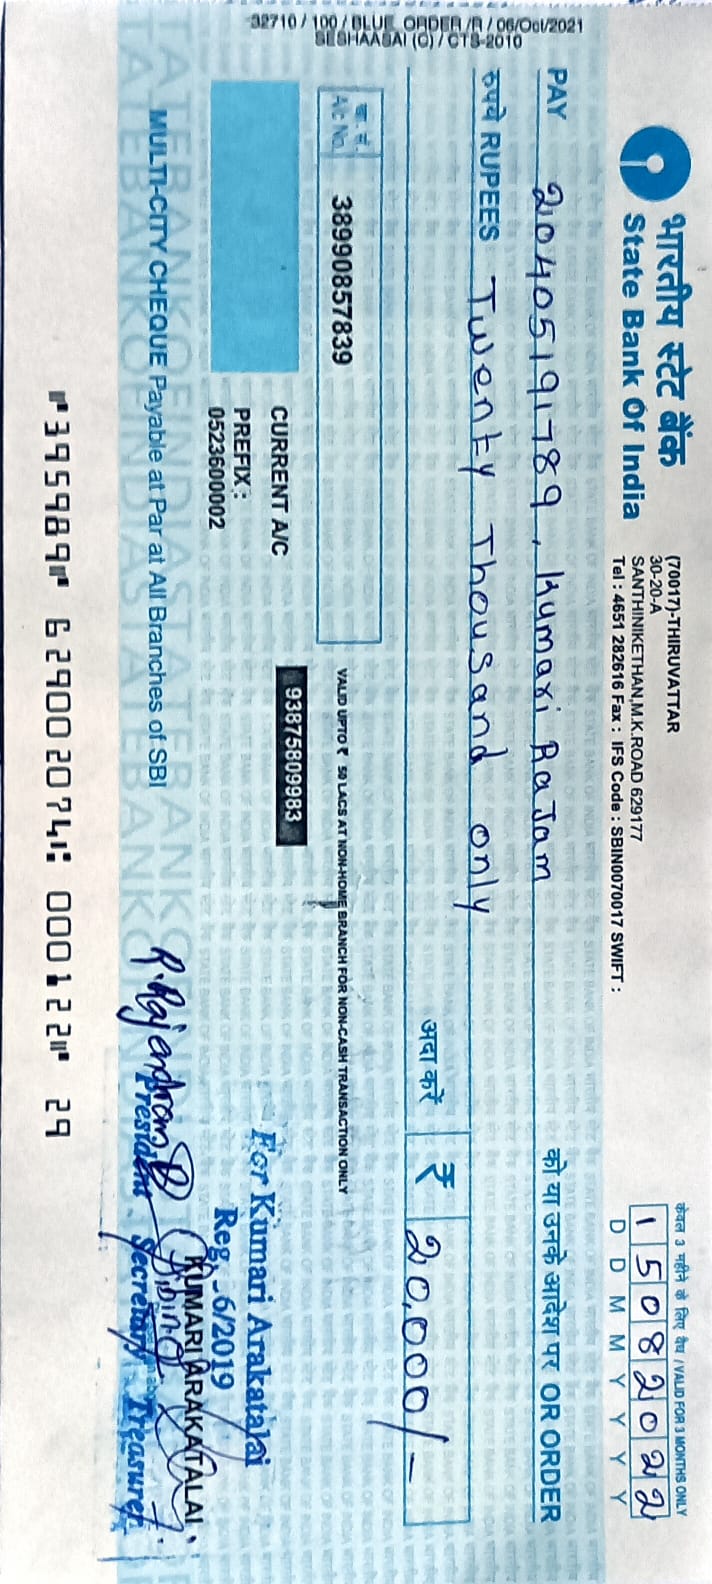 भारतीय स्टेट बैंक
State Bank Of India
(70017)-THIRUVATTAR
30-20-A
SANTHINIKETHAN,M.K.ROAD 629177
Tel : 4651 282616 Fax : IFS Code : SBIN0070017 SWIFT :
केवल 3 महीने के लिए वैध / VALID FOR 3 MONTHS ONLY
15082022
D D M M Y Y Y Y
PAY 20405191789, Kumari RaJam को या उनके आदेश पर OR ORDER
रुपये RUPEES Twenty Thousand only
अदा करें ₹ 20,000/-
खा. सं.
A/c No. 38990857839
VALID UPTO ₹ 50 LACS AT NON-HOME BRANCH FOR NON-CASH TRANSACTION ONLY
93875809983
CURRENT A/C
PREFIX :
0523600002
For Kumari Arakatalai
Reg. 6/2019
KUMARI ARAKATALAI
R.Rajendran
President Secretary Treasurer
MULTI-CITY CHEQUE Payable at Par at All Branches of SBI
STATE BANK OF INDIA
⑈395989⑈ 629002074⑆ 000122⑈ 29